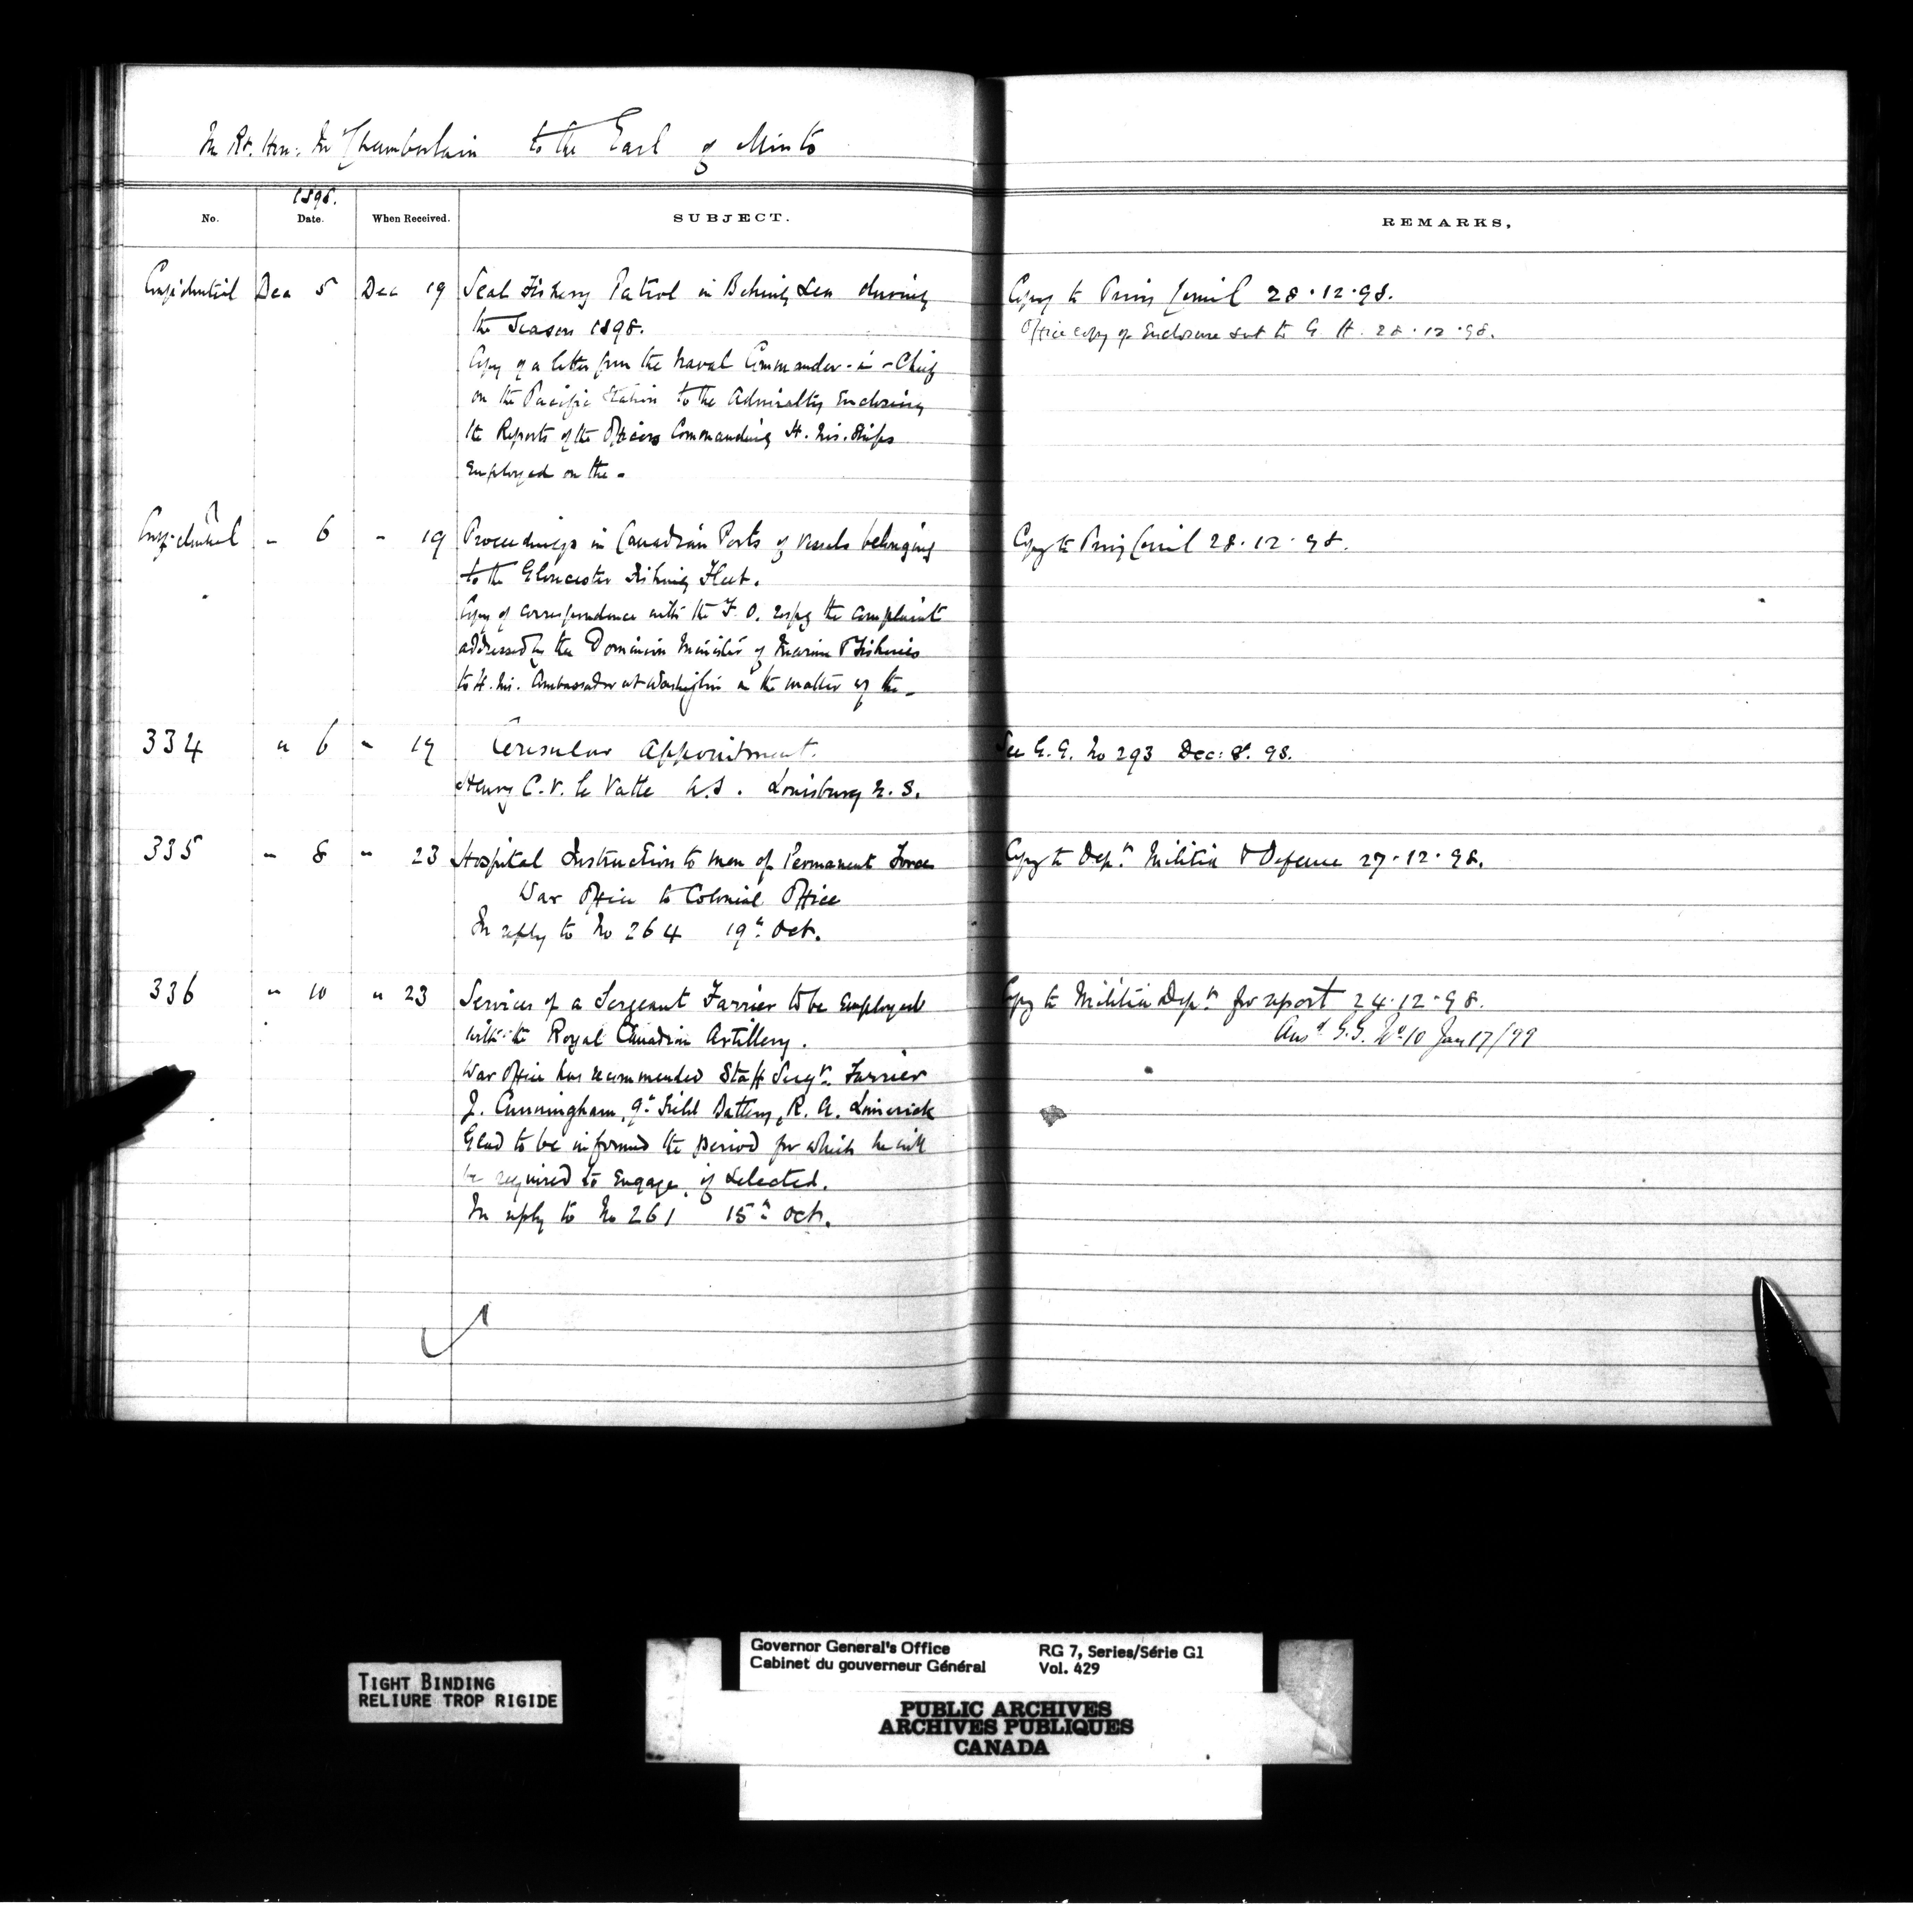 The Rt. Hon: Mr Chamberlain to the Earl of Minto
1898.
No. Date. When Received. SUBJECT. REMARKS.
Confidential Dec 5 Dec 19 Seal Fishery Patrol in Behring Sea during
the Season 1898.
Copy of a letter from the Naval Commander-in-Chief
on the Pacific Station to the Admiralty Enclosing
the Reports of the Officers Commanding H. Ms. Ships
Employed on the -
Copy to Privy Council 28.12.98.
Office copy of Enclosure sent to G. H. 28.12.98.
Confidential " 6 " 19 Proceedings in Canadian Ports of Vessels belonging
to the Gloucester Fishing Fleet.
Copy of correspondence with the F. O. respg the complaint
addressed by the Dominion Minister of Marine & Fisheries
to H. Ms. Ambassador at Washington in the matter of the -
Copy to Privy Council 28.12.98.
334 " 6 " 19 Consular Appointment.
Henry C. V. le Vatte U.S. Louisburg N. S.
See G. G. No 293 Dec: 8. 98.
335 " 8 " 23 Hospital Instruction to men of Permanent Force
War Office to Colonial Office
In reply to No 264 19th Oct.
Copy to Dept Militia & Defence 27.12.98.
336 " 10 " 23 Services of a Sergeant Farrier to be Employed
with the Royal Canadian Artillery.
War Office has recommended Staff Sergt. Farrier
J. Cunningham, 9th Field Battery, R. A. Limerick
Glad to be informed the period for which he will
be required to Engage, if Selected.
In reply to No 261 15th Oct.
Copy to Militia Dept for report 24.12.98.
Ansd G.G. No 10 Jan 17/99
TIGHT BINDING
RELIURE TROP RIGIDE
Governor General's Office RG 7, Series/Série G1
Cabinet du gouverneur Général Vol. 429
PUBLIC ARCHIVES
ARCHIVES PUBLIQUES
CANADA